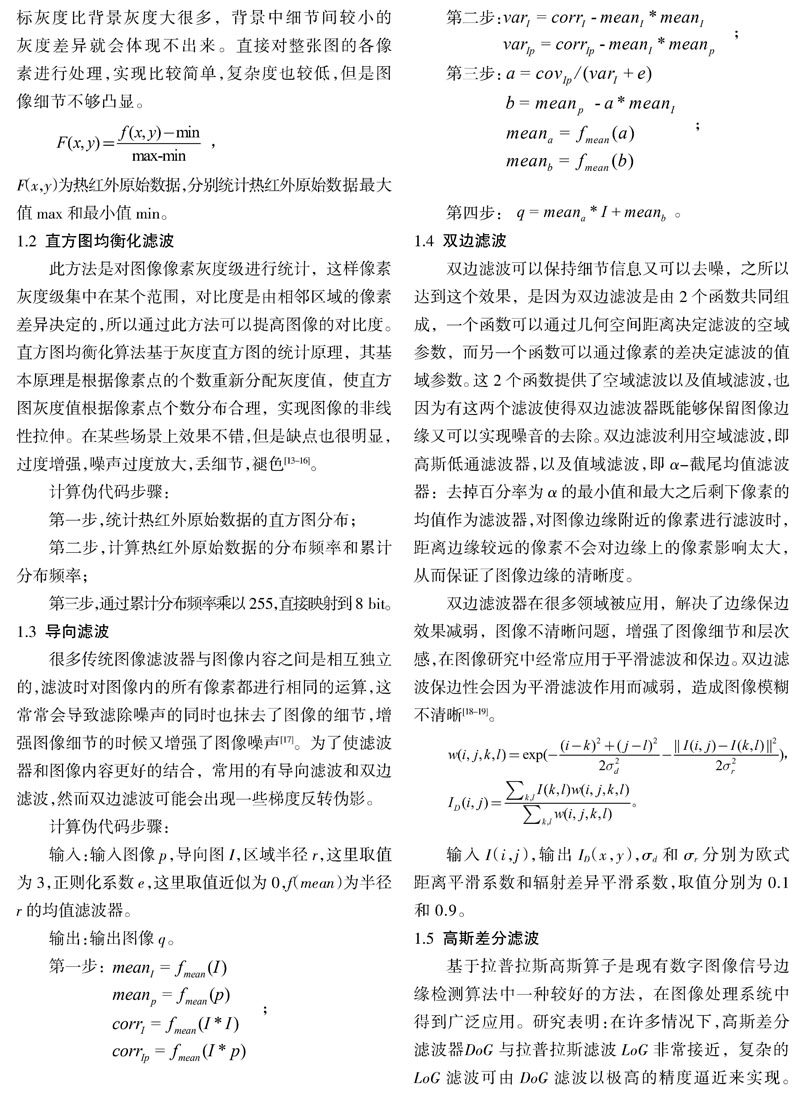 标灰度比背景灰度大很多，背景中细节间较小的
灰度差异就会体现不出来。直接对整张图的各像
素进行处理,实现比较简单,复杂度也较低,但是图
像细节不够凸显。
F(x,y)=\frac{f(x,y)-min}{max-min}，
F(x,y)为热红外原始数据,分别统计热红外原始数据最大
值 max 和最小值 min。
1.2 直方图均衡化滤波
此方法是对图像像素灰度级进行统计，这样像素
灰度级集中在某个范围，对比度是由相邻区域的像素
差异决定的,所以通过此方法可以提高图像的对比度。
直方图均衡化算法基于灰度直方图的统计原理，其基
本原理是根据像素点的个数重新分配灰度值，使直方
图灰度值根据像素点个数分布合理，实现图像的非线
性拉伸。在某些场景上效果不错,但是缺点也很明显,
过度增强,噪声过度放大,丢细节,褪色[13-16]。
计算伪代码步骤：
第一步,统计热红外原始数据的直方图分布；
第二步,计算热红外原始数据的分布频率和累计
分布频率；
第三步,通过累计分布频率乘以 255,直接映射到 8 bit。
1.3 导向滤波
很多传统图像滤波器与图像内容之间是相互独立
的,滤波时对图像内的所有像素都进行相同的运算,这
常常会导致滤除噪声的同时也抹去了图像的细节,增
强图像细节的时候又增强了图像噪声[17]。为了使滤波
器和图像内容更好的结合，常用的有导向滤波和双边
滤波,然而双边滤波可能会出现一些梯度反转伪影。
计算伪代码步骤：
输入:输入图像 p,导向图 I,区域半径 r,这里取值
为 3,正则化系数 e,这里取值近似为 0,f(mean)为半径
r 的均值滤波器。
输出:输出图像 q。
第一步：mean_I = f_mean(I)
mean_p = f_mean(p)
corr_I = f_mean(I * I)
corr_Ip = f_mean(I * p)
；
第二步:var_I = corr_I - mean_I * mean_I
var_Ip = corr_Ip - mean_I * mean_p
；
第三步：a = cov_Ip /(var_I + e)
b = mean_p - a * mean_I
mean_a = f_mean(a)
mean_b = f_mean(b)
；
第四步： q = mean_a * I + mean_b 。
1.4 双边滤波
双边滤波可以保持细节信息又可以去噪，之所以
达到这个效果，是因为双边滤波是由 2 个函数共同组
成，一个函数可以通过几何空间距离决定滤波的空域
参数，而另一个函数可以通过像素的差决定滤波的值
域参数。这 2 个函数提供了空域滤波以及值域滤波,也
因为有这两个滤波使得双边滤波器既能够保留图像边
缘又可以实现噪音的去除。双边滤波利用空域滤波,即
高斯低通滤波器,以及值域滤波,即 α-截尾均值滤波
器：去掉百分率为 α 的最小值和最大之后剩下像素的
均值作为滤波器,对图像边缘附近的像素进行滤波时,
距离边缘较远的像素不会对边缘上的像素影响太大,
从而保证了图像边缘的清晰度。
双边滤波器在很多领域被应用，解决了边缘保边
效果减弱，图像不清晰问题，增强了图像细节和层次
感,在图像研究中经常应用于平滑滤波和保边。双边滤
波保边性会因为平滑滤波作用而减弱，造成图像模糊
不清晰[18-19]。
w(i,j,k,l)=exp(-\frac{(i-k)^2+(j-l)^2}{2σ_d^2}-\frac{‖I(i,j)-I(k,l)‖^2}{2σ_r^2}),
I_D(i,j)=\frac{∑_{k,l}I(k,l)w(i,j,k,l)}{∑_{k,l}w(i,j,k,l)}。
输入 I(i,j),输出 I_D(x,y),σ_d 和 σ_r 分别为欧式
距离平滑系数和辐射差异平滑系数,取值分别为 0.1
和 0.9。
1.5 高斯差分滤波
基于拉普拉斯高斯算子是现有数字图像信号边
缘检测算法中一种较好的方法，在图像处理系统中
得到广泛应用。研究表明:在许多情况下,高斯差分
滤波器DoG 与拉普拉斯滤波 LoG 非常接近，复杂的
LoG 滤波可由 DoG 滤波以极高的精度逼近来实现。